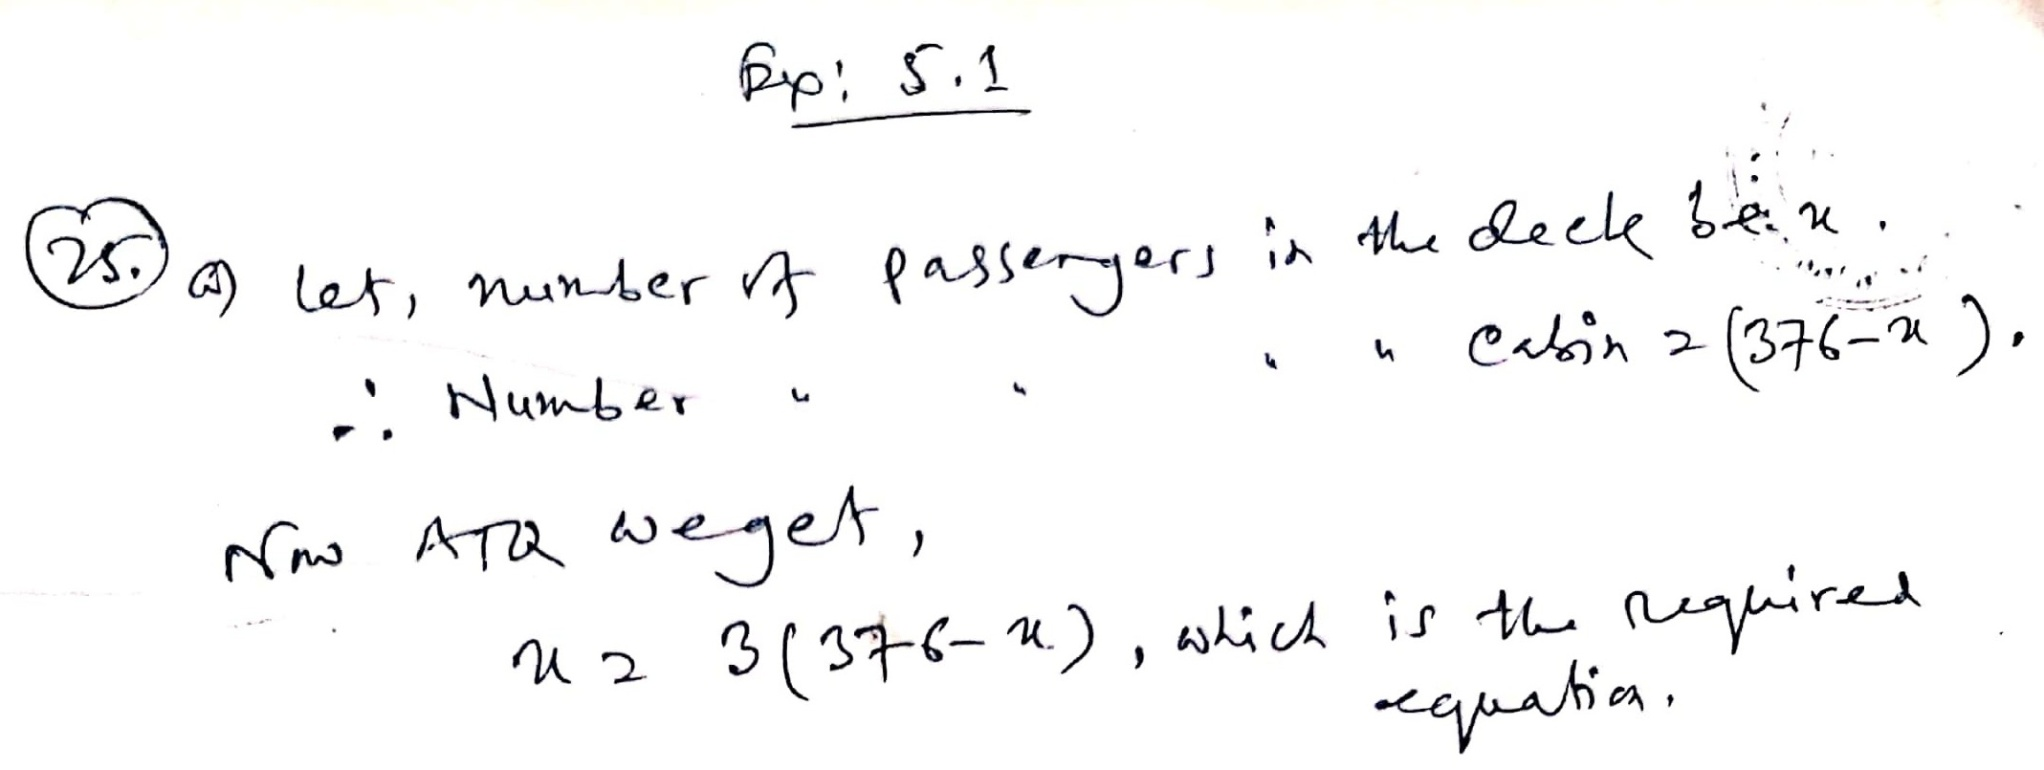 Exp: 5.1
25. a) let, number of passengers in the deck be x.
∴ Number " " " " Cabin = (376-x).
Now ATQ we get,
x = 3(376-x), which is the required
equation.